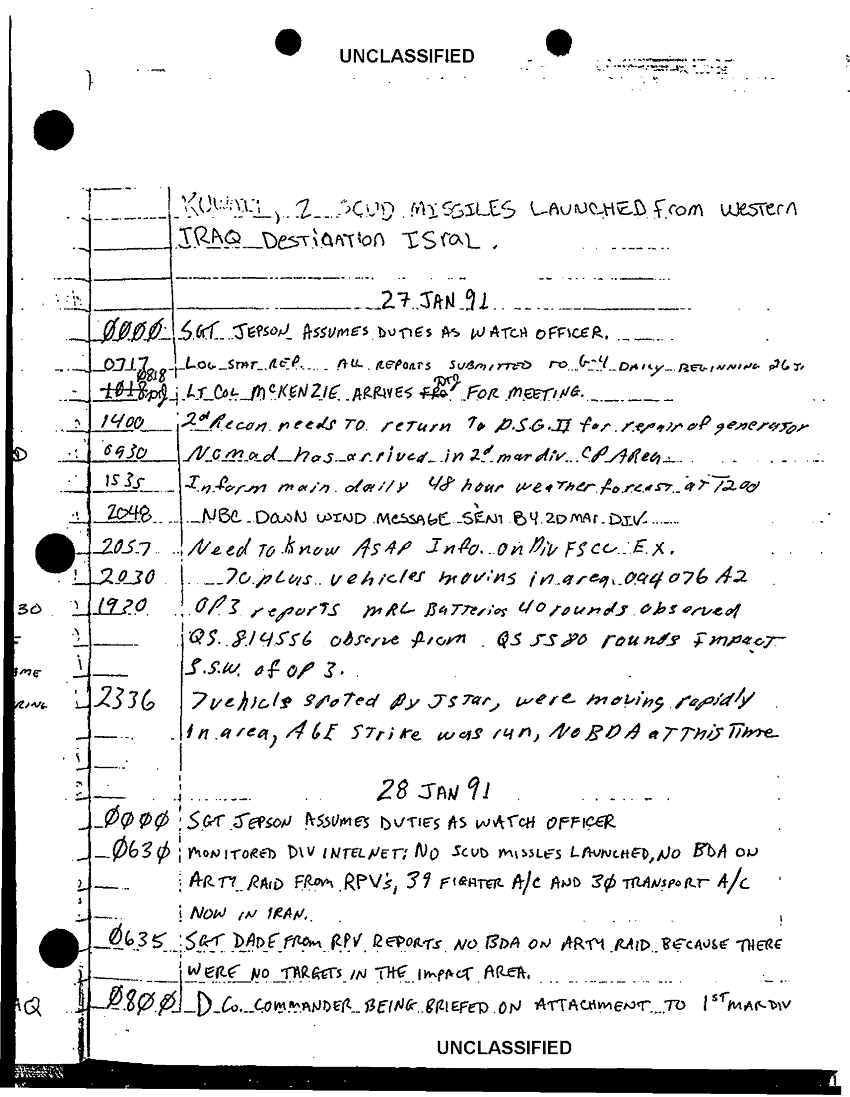 UNCLASSIFIED
KUWAIT, 2 SCUD MISSILES LAUNCHED from Western
IRAQ Destination ISral.
27 JAN 91
0000 SGT JEPSON ASSUMES DUTIES AS WATCH OFFICER.
0717 LOG STAT REP. ALL REPORTS SUBMITTED TO G-4 DAILY BEGINNING 26 J.
0818
1018 LT COL McKENZIE ARRIVES FOR MEETING.
1400 2d Recon needs To return To D.S.G. II for repair of generator
0930 Nomad has arrived in 2d mar div CP ARea
1535 Inform main daily 48 hour weather forcast at 1200
2048 NBC DOWN WIND MESSAGE SENT BY 2D MAR DIV.
2057 Need To Know ASAP Info. on Div FSCC E.X.
2030 70 plus vehicles moving in area 094076 A2
1920 OP3 reports MRL Batteries 40 rounds observed
QS 814556 observe from QS 5580 rounds Impact
S.S.W. of OP 3.
2336 7 vehicle spoted by JSTar, were moving rapidly
In area, A6E STrike was run, No BDA aT This Time
28 JAN 91
0000 SGT JEPSON ASSUMES DUTIES AS WATCH OFFICER
0630 MONITORED DIV INTEL NET: NO SCUD MISSLES LAUNCHED, NO BDA ON
ARTY RAID FROM RPV's, 39 FIGHTER A/C AND 30 TRANSPORT A/C
NOW IN IRAN.
0635 SGT DADE FROM RPV REPORTS NO BDA ON ARTY RAID BECAUSE THERE
WERE NO TARGETS IN THE IMPACT AREA.
0800 D Co. COMMANDER BEING BRIEFED ON ATTACHMENT TO 1ST MAR DIV
UNCLASSIFIED